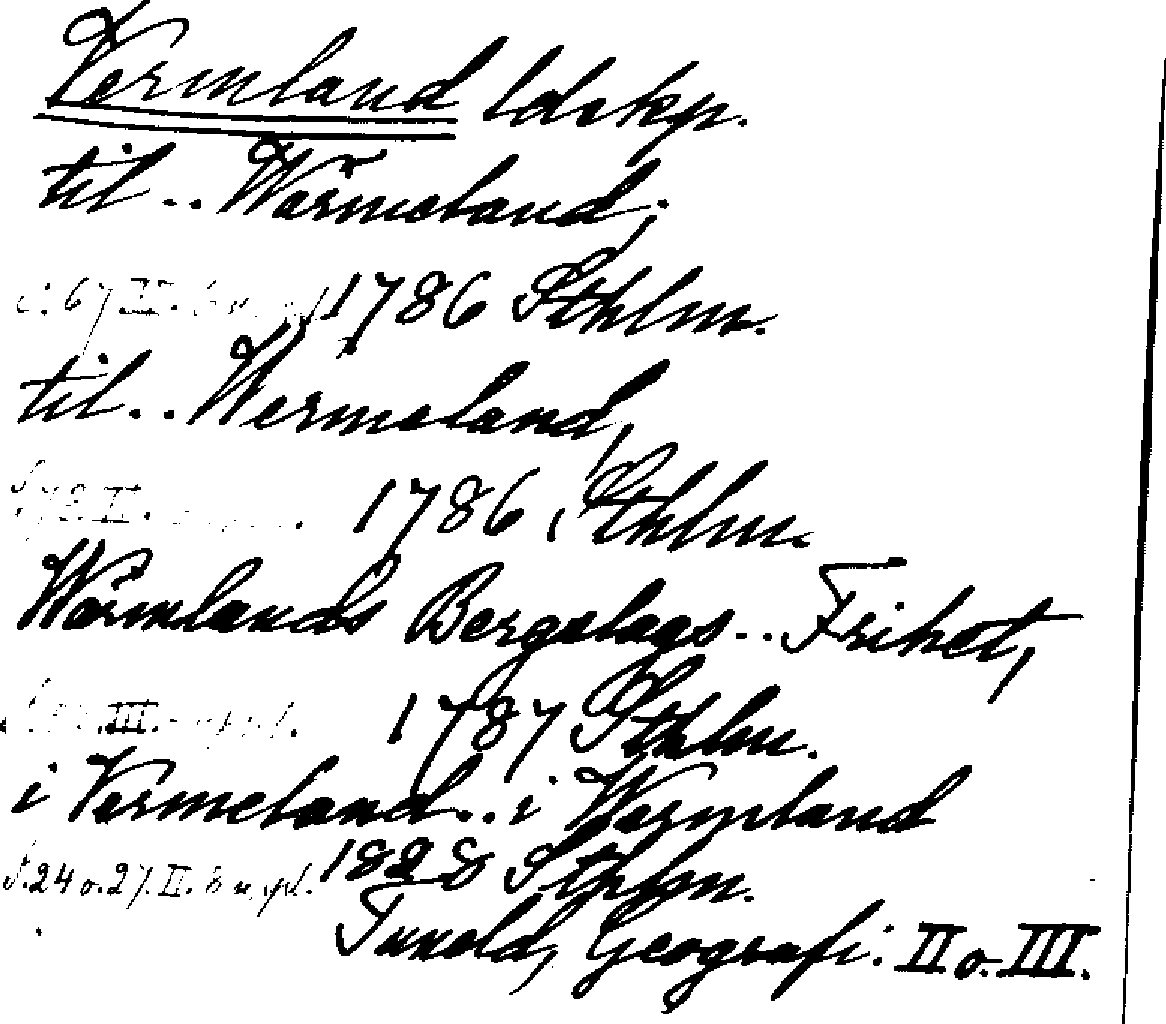 Vermland ldskp.
til .. Wärmeland;
s. 67 II. 6 u. 1786 Sthlm.
til .. Wermeland,
II. 1786, Sthlm.
Wärmlands Bergslags .. Frihet,
III. 1787 Sthlm.
i Vermeland .. i Wermland
S. 24 o. 27. II. 6 u, pl. 1828 Sthlm.
Tuneld, Geografi: II o. III.